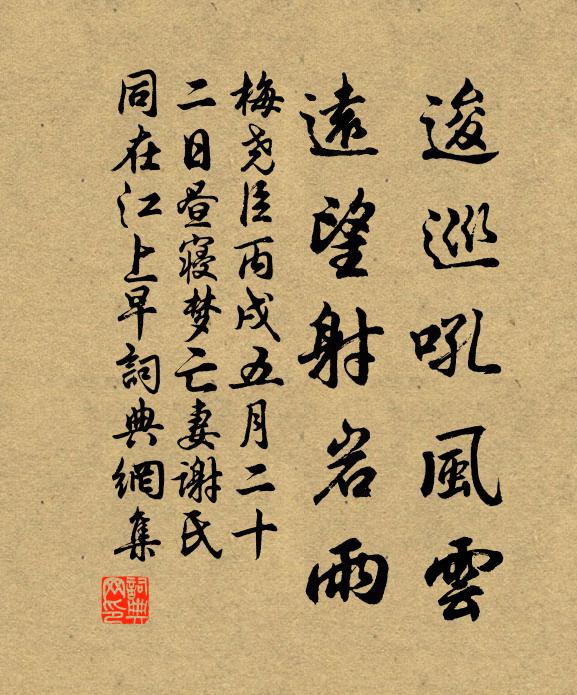 逡巡吼風雲
遠望射岩雨
梅尧臣丙戌五月二十
二日昼寝梦亡妻谢氏
同在江上早詞典網集
詞典
网印